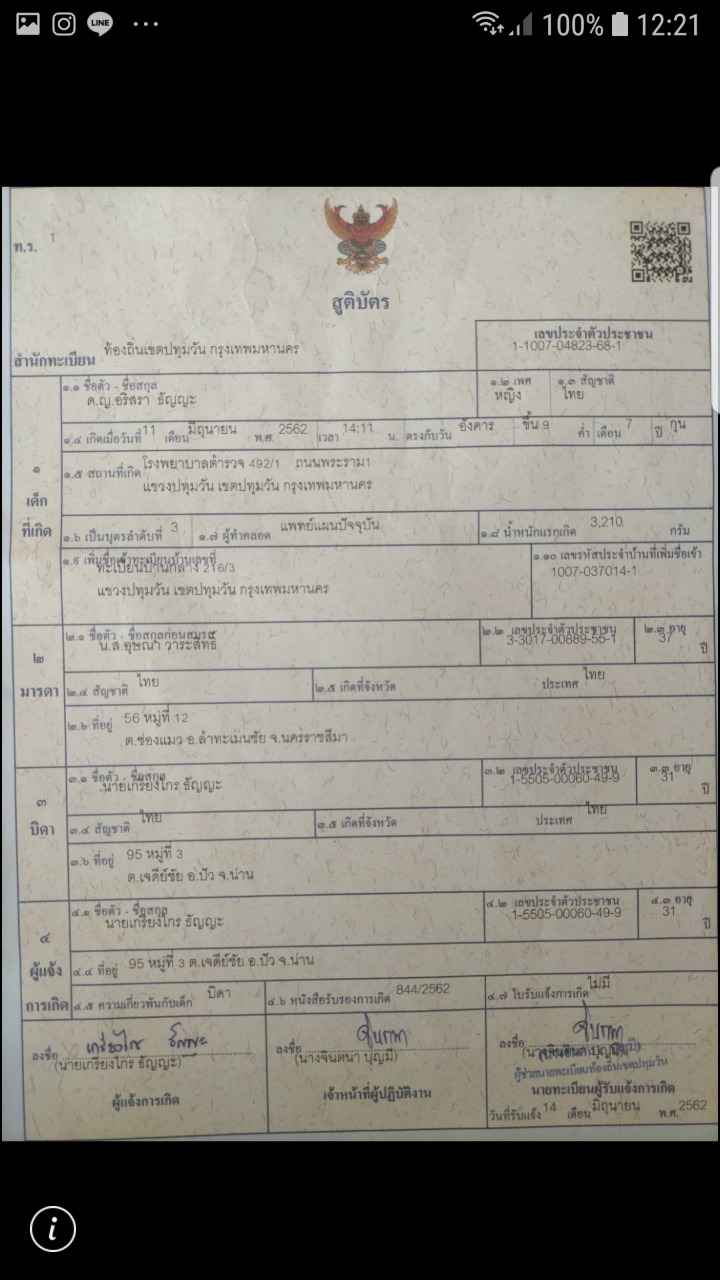 LINE ... 100% 12:21
ท.ร. 1
สูติบัตร
เลขประจำตัวประชาชน
1-1007-04823-68-1
สำนักทะเบียน ท้องถิ่นเขตปทุมวัน กรุงเทพมหานคร
๑ เด็กที่เกิด
๑.๑ ชื่อตัว - ชื่อสกุล ด.ญ.อริสรา ธัญญะ
๑.๒ เพศ หญิง
๑.๓ สัญชาติ ไทย
๑.๔ เกิดเมื่อวันที่ 11 เดือน มิถุนายน พ.ศ. 2562 เวลา 14:11 น. ตรงกับวัน อังคาร ขึ้น 9 ค่ำ เดือน 7 ปี กุน
๑.๕ สถานที่เกิด โรงพยาบาลตำรวจ 492/1 ถนนพระราม1
แขวงปทุมวัน เขตปทุมวัน กรุงเทพมหานคร
๑.๖ เป็นบุตรลำดับที่ 3 ๑.๗ ผู้ทำคลอด แพทย์แผนปัจจุบัน ๑.๘ น้ำหนักแรกเกิด 3,210 กรัม
๑.๙ เพิ่มชื่อเข้าทะเบียนบ้านเลขที่ ทะเบียนบ้านกลาง 216/3
แขวงปทุมวัน เขตปทุมวัน กรุงเทพมหานคร
๑.๑๐ เลขรหัสประจำบ้านที่เพิ่มชื่อเข้า
1007-037014-1
๒ มารดา
๒.๑ ชื่อตัว - ชื่อสกุลก่อนสมรส น.ส.อุษณา วาระสิทธิ์
๒.๒ เลขประจำตัวประชาชน 3-3017-00889-55-1
๒.๓ อายุ 37 ปี
๒.๔ สัญชาติ ไทย ๒.๕ เกิดที่จังหวัด ประเทศ ไทย
๒.๖ ที่อยู่ 56 หมู่ที่ 12
ต.ช่องแมว อ.ลำทะเมนชัย จ.นครราชสีมา
๓ บิดา
๓.๑ ชื่อตัว - ชื่อสกุล นายเกรียงไกร ธัญญะ
๓.๒ เลขประจำตัวประชาชน 1-5505-00060-49-9
๓.๓ อายุ 31 ปี
๓.๔ สัญชาติ ไทย ๓.๕ เกิดที่จังหวัด ประเทศ ไทย
๓.๖ ที่อยู่ 95 หมู่ที่ 3
ต.เจดีย์ชัย อ.ปัว จ.น่าน
๔ ผู้แจ้งการเกิด
๔.๑ ชื่อตัว - ชื่อสกุล นายเกรียงไกร ธัญญะ
๔.๒ เลขประจำตัวประชาชน 1-5505-00060-49-9
๔.๓ อายุ 31 ปี
๔.๔ ที่อยู่ 95 หมู่ที่ 3 ต.เจดีย์ชัย อ.ปัว จ.น่าน
๔.๕ ความเกี่ยวพันกับเด็ก บิดา ๔.๖ หนังสือรับรองการเกิด 844/2562 ๔.๗ ใบรับแจ้งการเกิด ไม่มี
ลงชื่อ เกรียงไกร ธัญญะ
(นายเกรียงไกร ธัญญะ)
ผู้แจ้งการเกิด
ลงชื่อ
(นางจินตนา บุญมี)
เจ้าหน้าที่ผู้ปฏิบัติงาน
ลงชื่อ
(นางจินตนา บุญมี)
ผู้ช่วยนายทะเบียนท้องถิ่นเขตปทุมวัน
นายทะเบียนผู้รับแจ้งการเกิด
วันที่รับแจ้ง 14 เดือน มิถุนายน พ.ศ. 2562